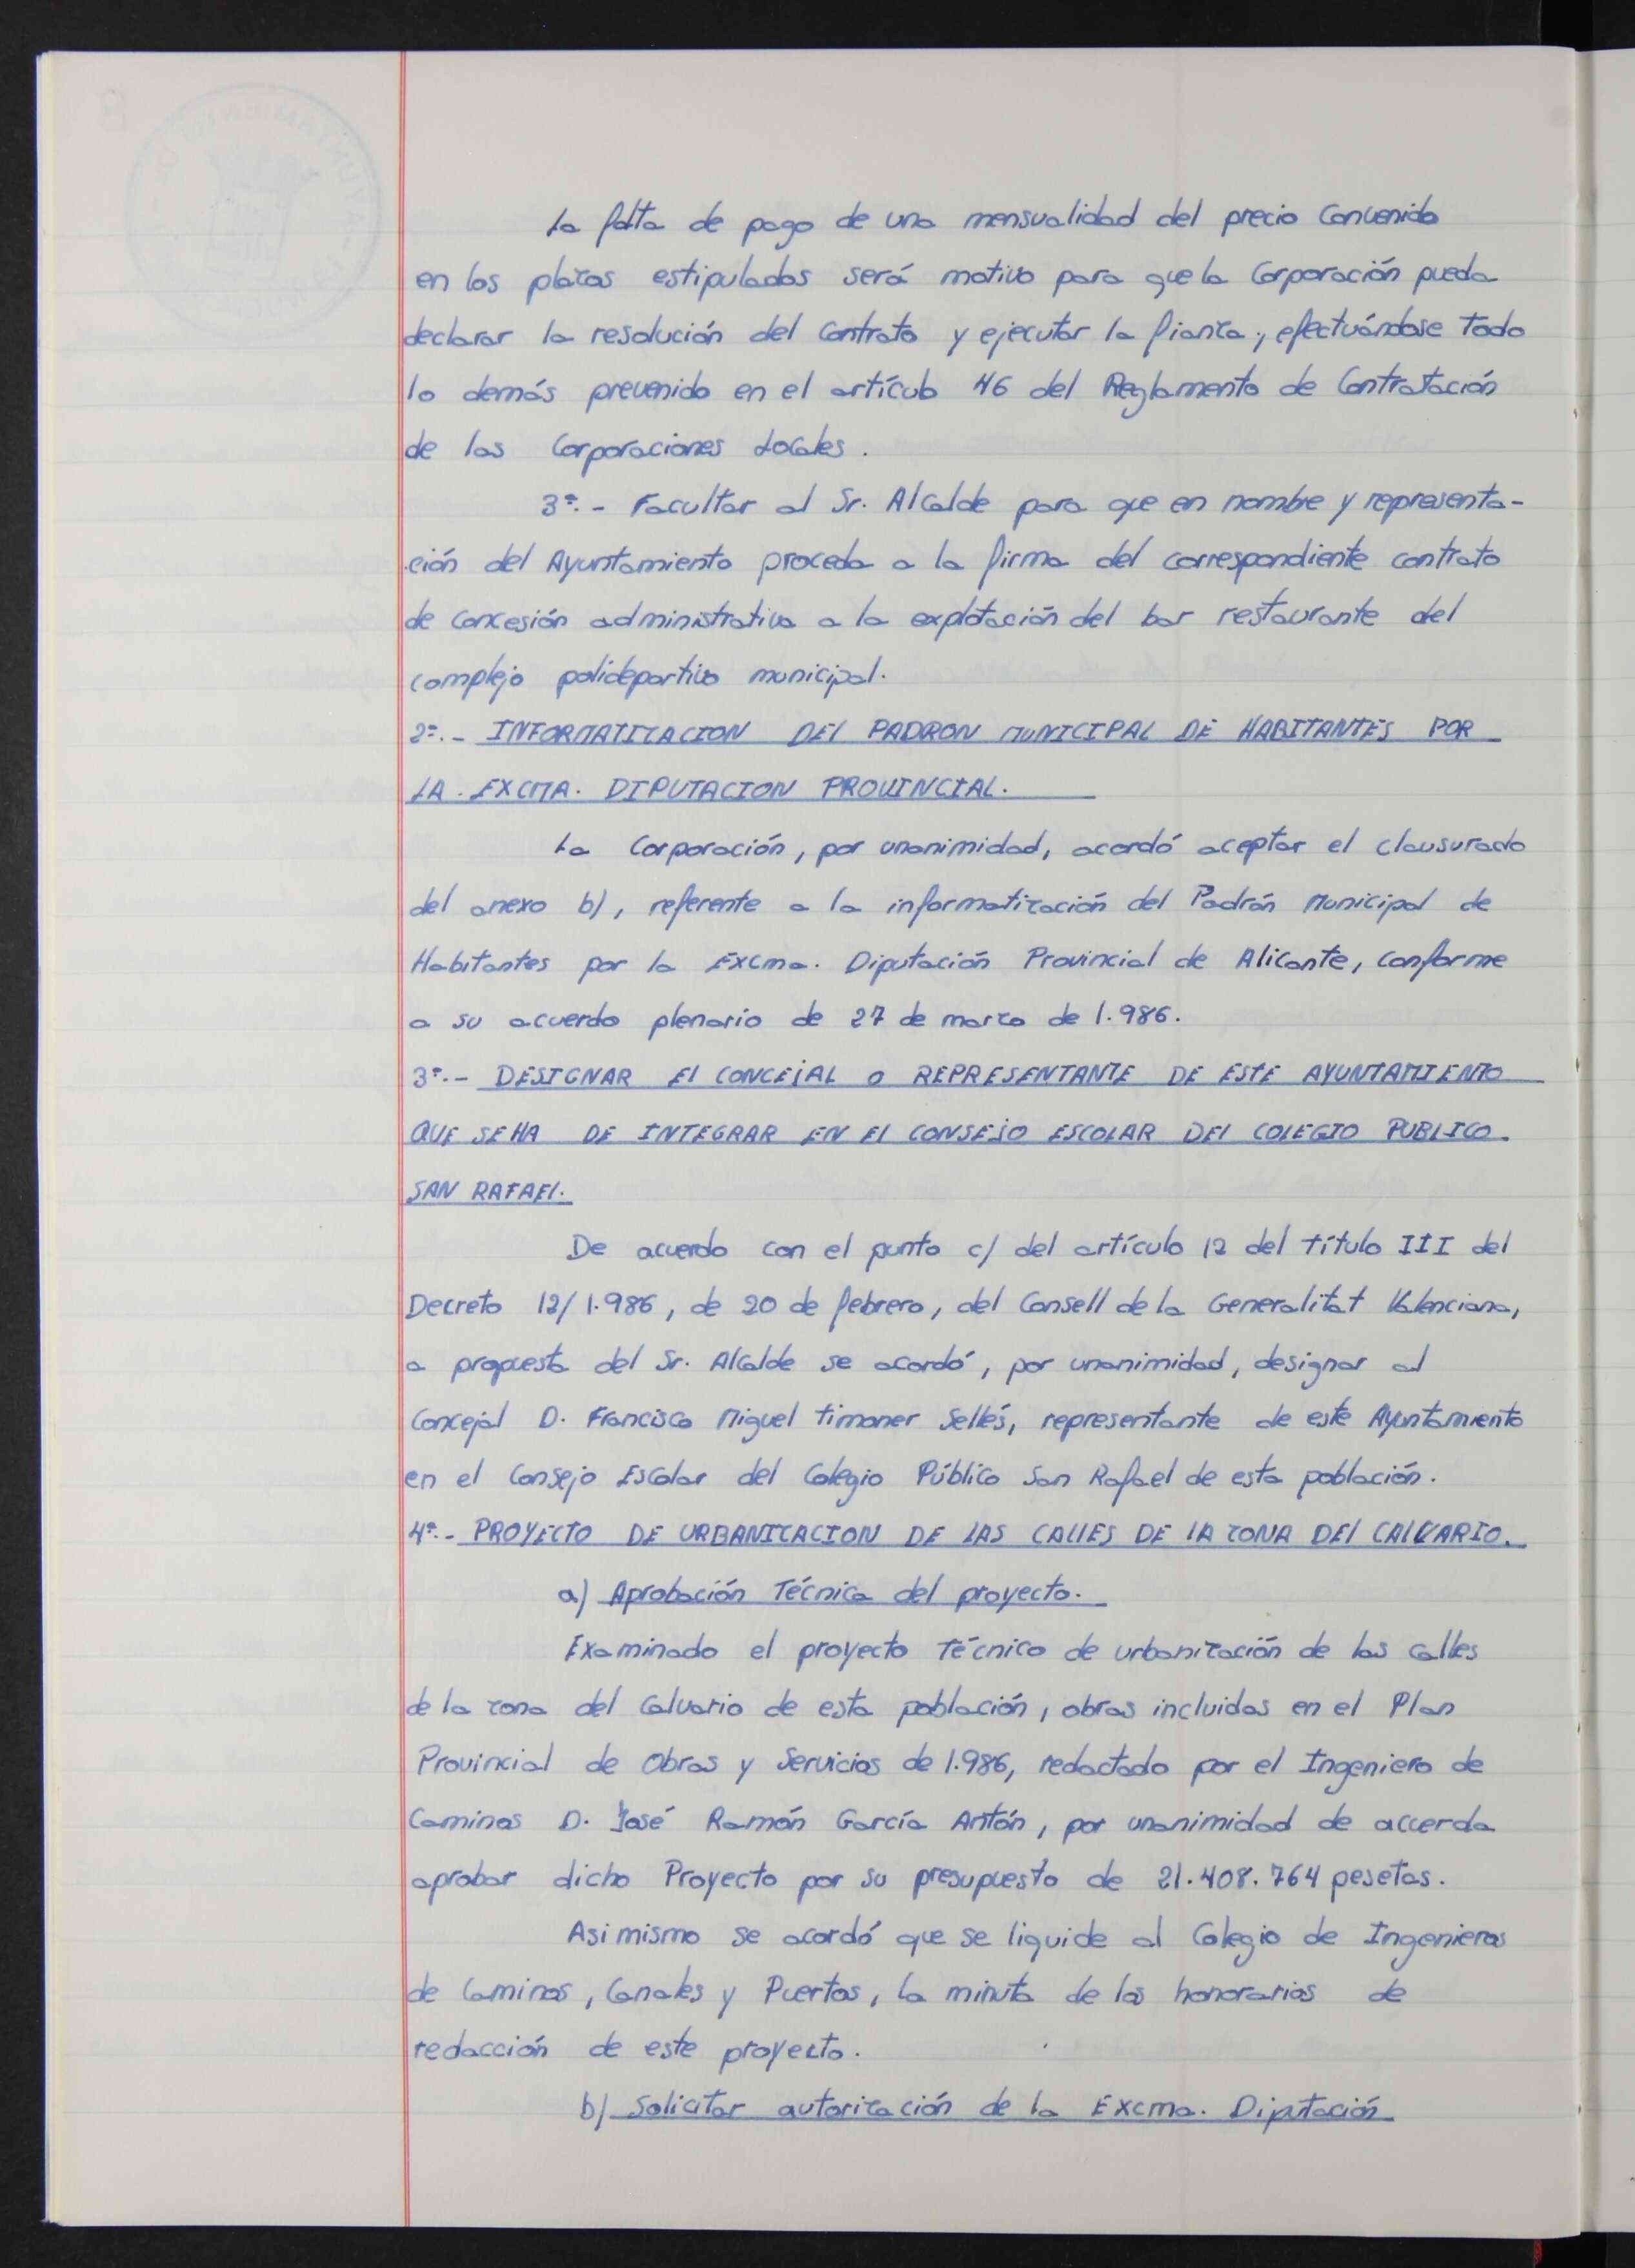 La falta de pago de una mensualidad del precio Convenido
en los plazos estipulados será motivo para que la Corporación pueda
declarar la resolución del Contrato y ejecutar la fianza, efectuándose todo
lo demás prevenido en el artículo 46 del Reglamento de Contratación
de las Corporaciones Locales.
3º.- Facultar al Sr. Alcalde para que en nombre y representa-
ción del Ayuntamiento proceda a la firma del correspondiente contrato
de concesión administrativa a la explotación del bar restaurante del
complejo polideportivo municipal.
2º.- INFORMATIZACION DEL PADRON MUNICIPAL DE HABITANTES POR
LA EXCMA. DIPUTACION PROVINCIAL.
La Corporación, por unanimidad, acordó aceptar el clausurado
del anexo b), referente a la informatización del Padrón Municipal de
Habitantes por la Excma. Diputación Provincial de Alicante, conforme
a su acuerdo plenario de 27 de marzo de 1.986.
3º.- DESIGNAR El CONCEJAL O REPRESENTANTE DE ESTE AYUNTAMIENTO
QUE SE HA DE INTEGRAR EN El CONSEJO ESCOLAR DEl COLEGIO PUBLICO
SAN RAFAEl.
De acuerdo con el punto c/ del artículo 12 del título III del
Decreto 12/1.986, de 20 de febrero, del Consell de la Generalitat Valenciana,
a propuesta del Sr. Alcalde se acordó, por unanimidad, designar al
Concejal D. Francisco Miguel Timoner Sellés, representante de este Ayuntamiento
en el Consejo Escolar del Colegio Público San Rafael de esta población.
4º.- PROYECTO DE URBANIZACION DE LAS CALLES DE LA ZONA DEL CALVARIO.
a) Aprobación Técnica del proyecto.
Examinado el proyecto Técnico de urbanización de las calles
de la zona del Calvario de esta población, obras incluidas en el Plan
Provincial de Obras y Servicios de 1.986, redactado por el Ingeniero de
Caminos D. José Ramón García Antón, por unanimidad de acuerda
aprobar dicho Proyecto por su presupuesto de 21.408.764 pesetas.
Asi mismo se acordó que se liquide al Colegio de Ingenieros
de Caminos, Canales y Puertos, la minuta de los honorarios de
redacción de este proyecto.
b) Solicitar autorización de la Excma. Diputación